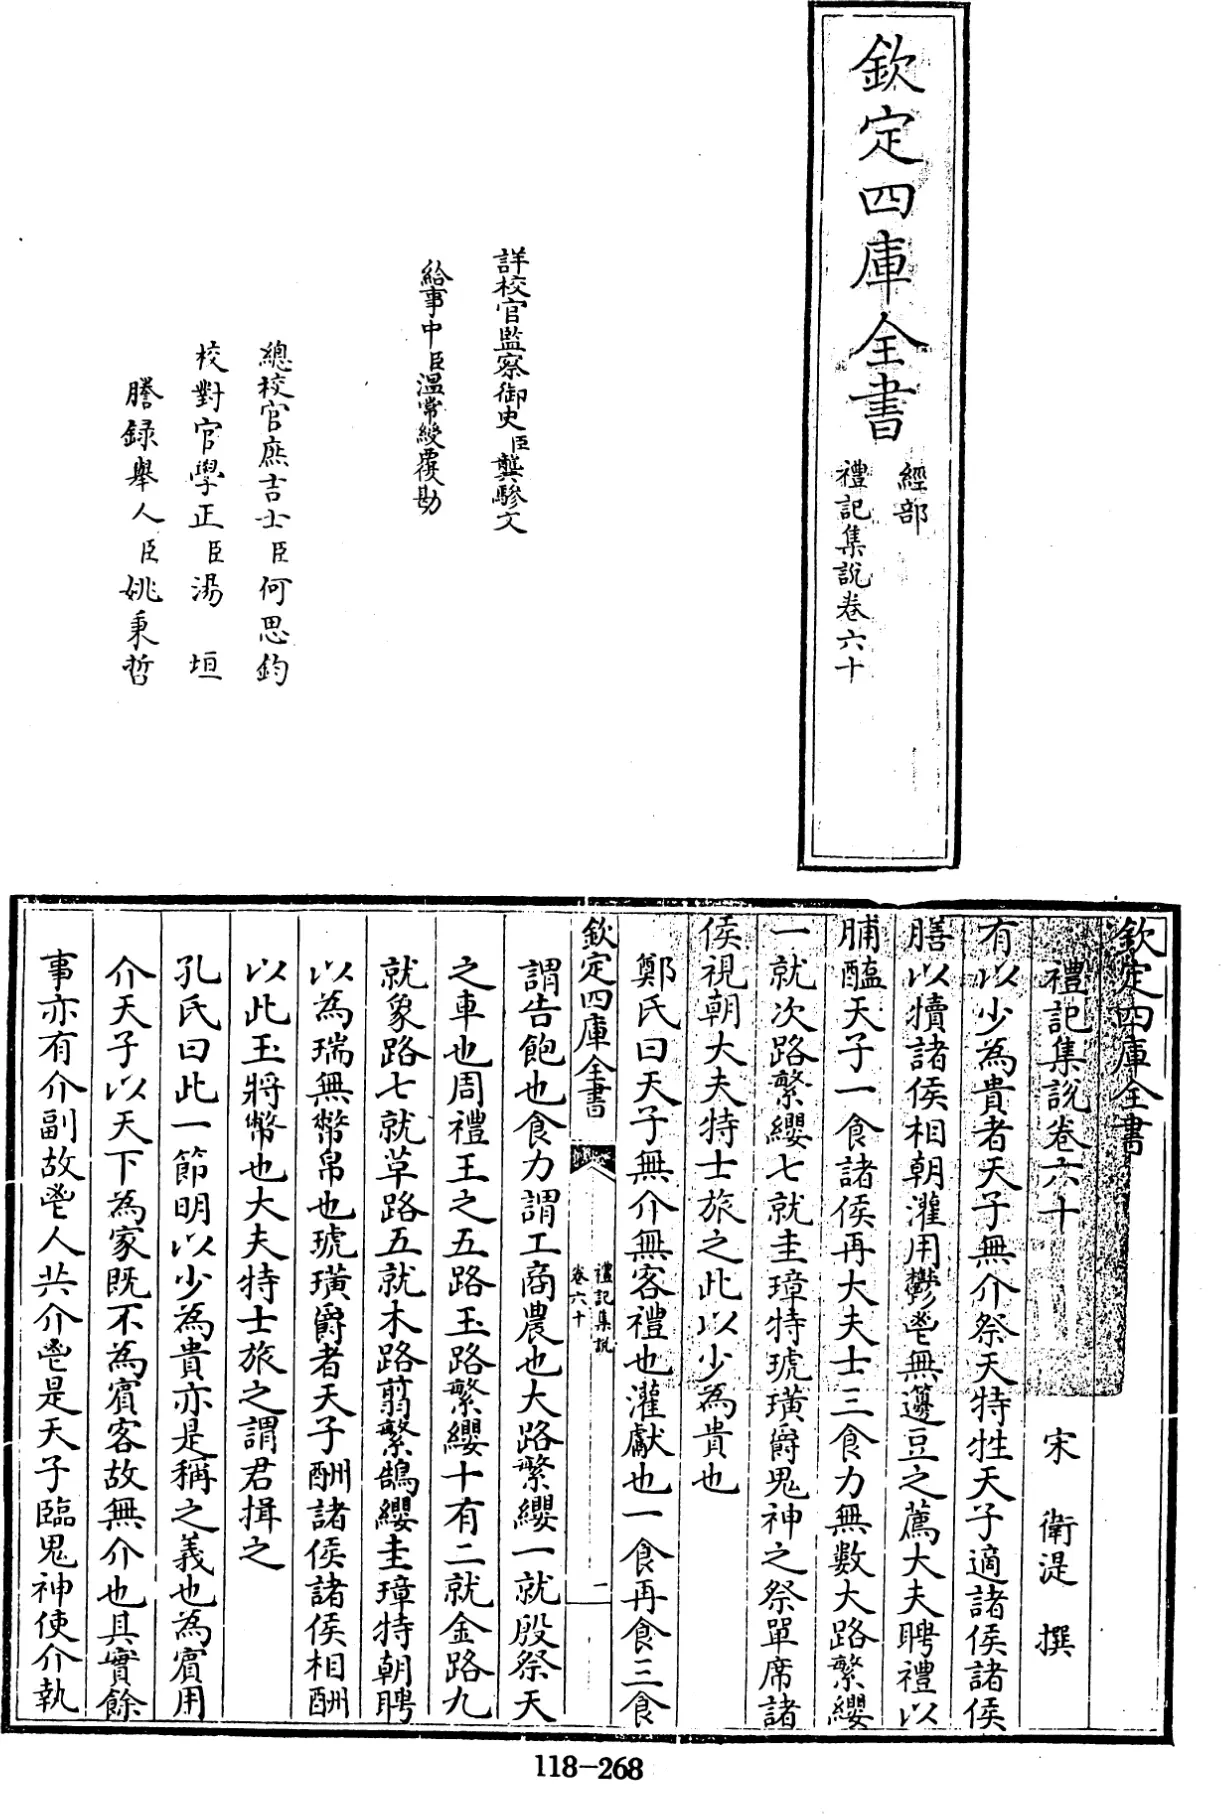 欽定四庫全書
經部
禮記集說卷六十
詳校官監察御史臣龔驂文
給事中臣溫常綬覆勘
總校官庶吉士臣何思鈞
校對官學正臣湯垣
謄錄舉人臣姚秉哲
欽定四庫全書
禮記集說卷六十
宋 衛湜 撰
有以少為貴者天子無介祭天特牲天子適諸侯諸侯
膳以犢諸侯相朝灌用鬱鬯無籩豆之薦大夫聘禮以
脯醢天子一食諸侯再大夫士三食力無數大路繁纓
一就次路繁纓七就圭璋特琥璜爵鬼神之祭單席諸
侯視朝大夫特士旅之此以少為貴也
鄭氏曰天子無介無客禮也灌獻也一食再食三食
欽定四庫全書
禮記集說
卷六十
二
謂告飽也食力謂工商農也大路繁纓一就殷祭天
之車也周禮王之五路玉路繁纓十有二就金路九
就象路七就草路五就木路翦繁鵠纓圭璋特朝聘
以為瑞無幣帛也琥璜爵者天子酬諸侯諸侯相酬
以此玉將幣也大夫特士旅之謂君揖之
孔氏曰此一節明以少為貴亦是稱之義也為賓用
介天子以天下為家既不為賓客故無介也其實餘
事亦有介副故鬯人共介鬯是天子臨鬼神使介執
118-268